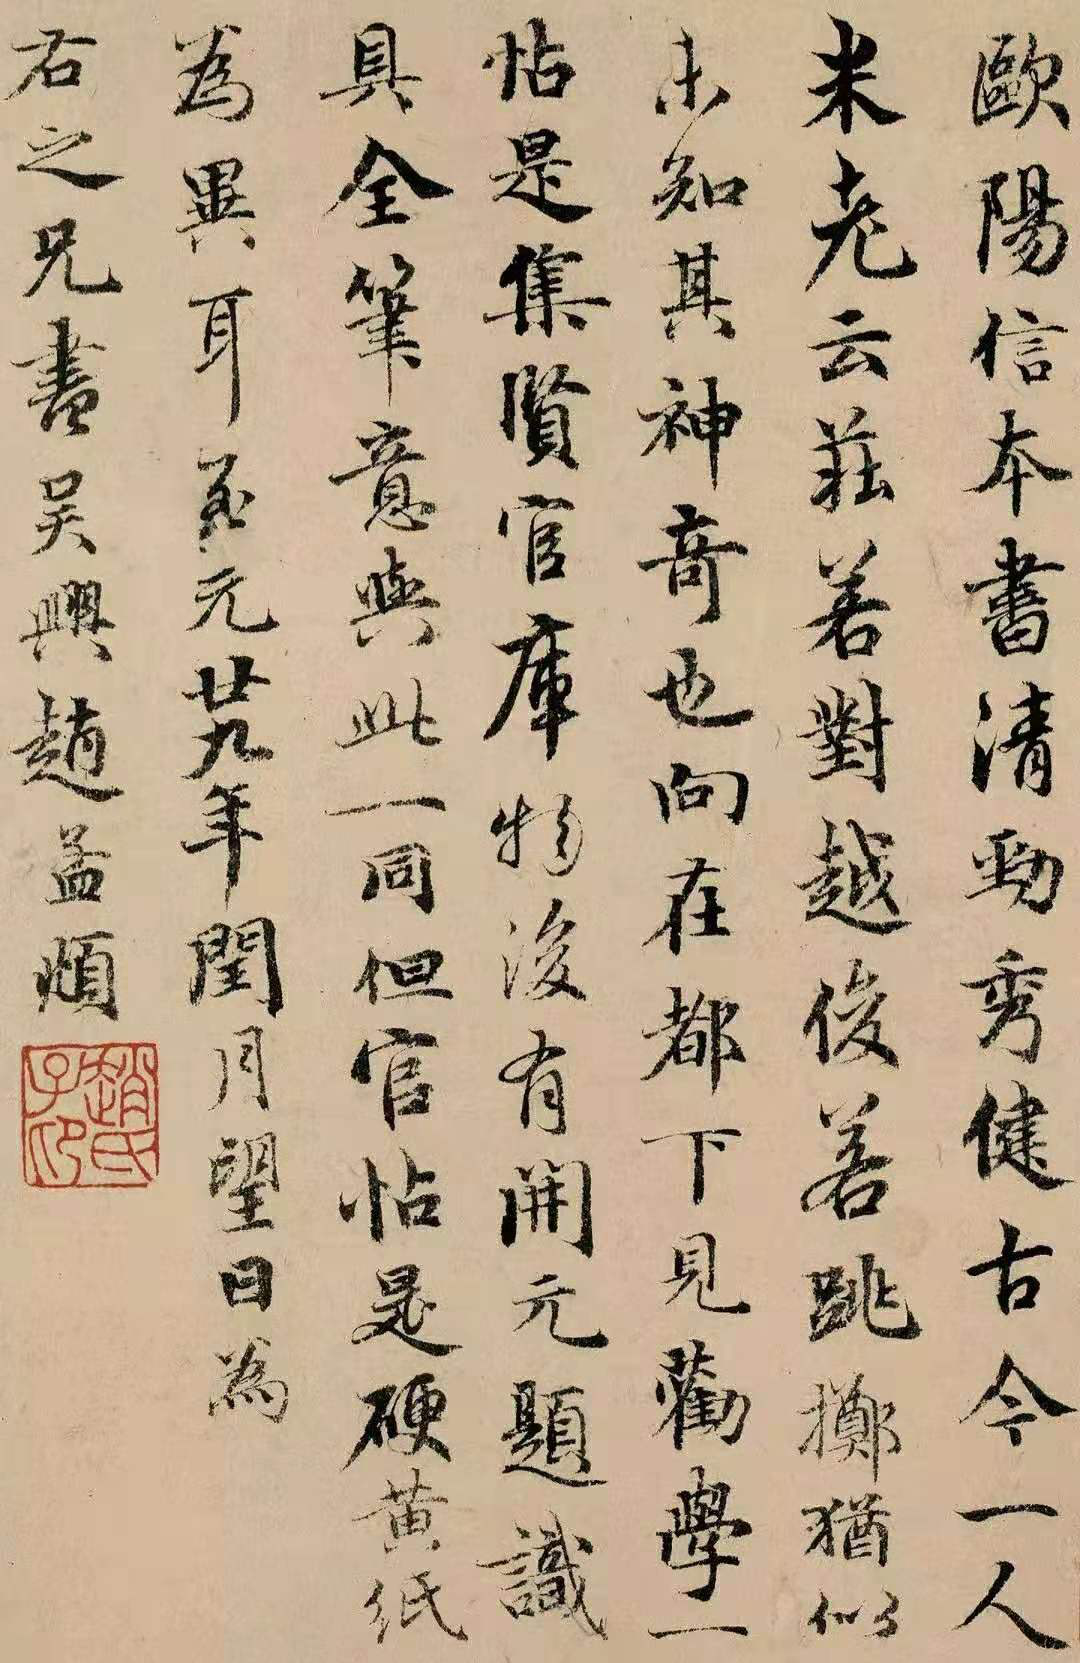 歐陽信本書清勁秀健古今一人
米老云莊若對越俊若跳擲猶似
未知其神奇也向在都下見勸學一
帖是集賢官庫物後有開元題識
具全筆意與此一同但官帖是硬黄紙
為異耳至元廿九年閏月望日為
右之兄書吳興趙孟頫
趙氏子印